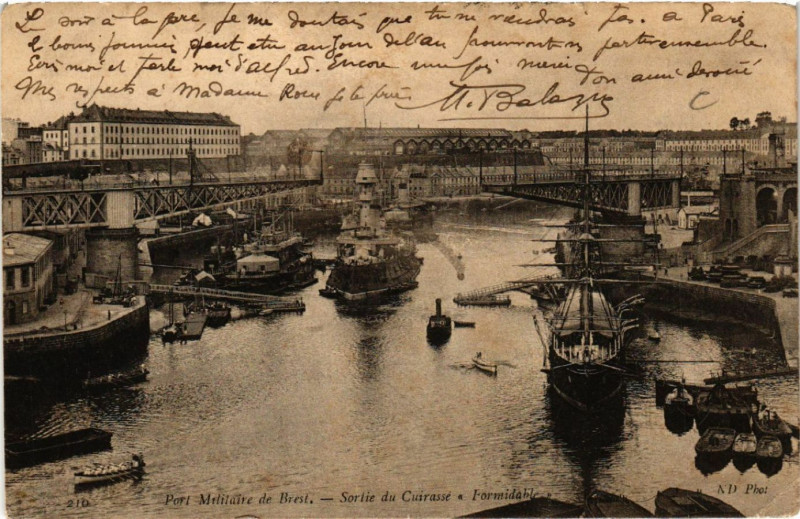 Le soir à la pre, Je me doutais que tu ne viendras pas. a Paris
et bonis fournier peut etu aujour delsan pourront ns partir ensemble.
Ecris moi et parle moi d'alfred. Encore une fois merci Ton ami dévoué
Mes respects à Madame Roux je te prie M. Balazy
C
210 Port Militaire de Brest. — Sortie du Cuirassé « Formidable » ND Phot